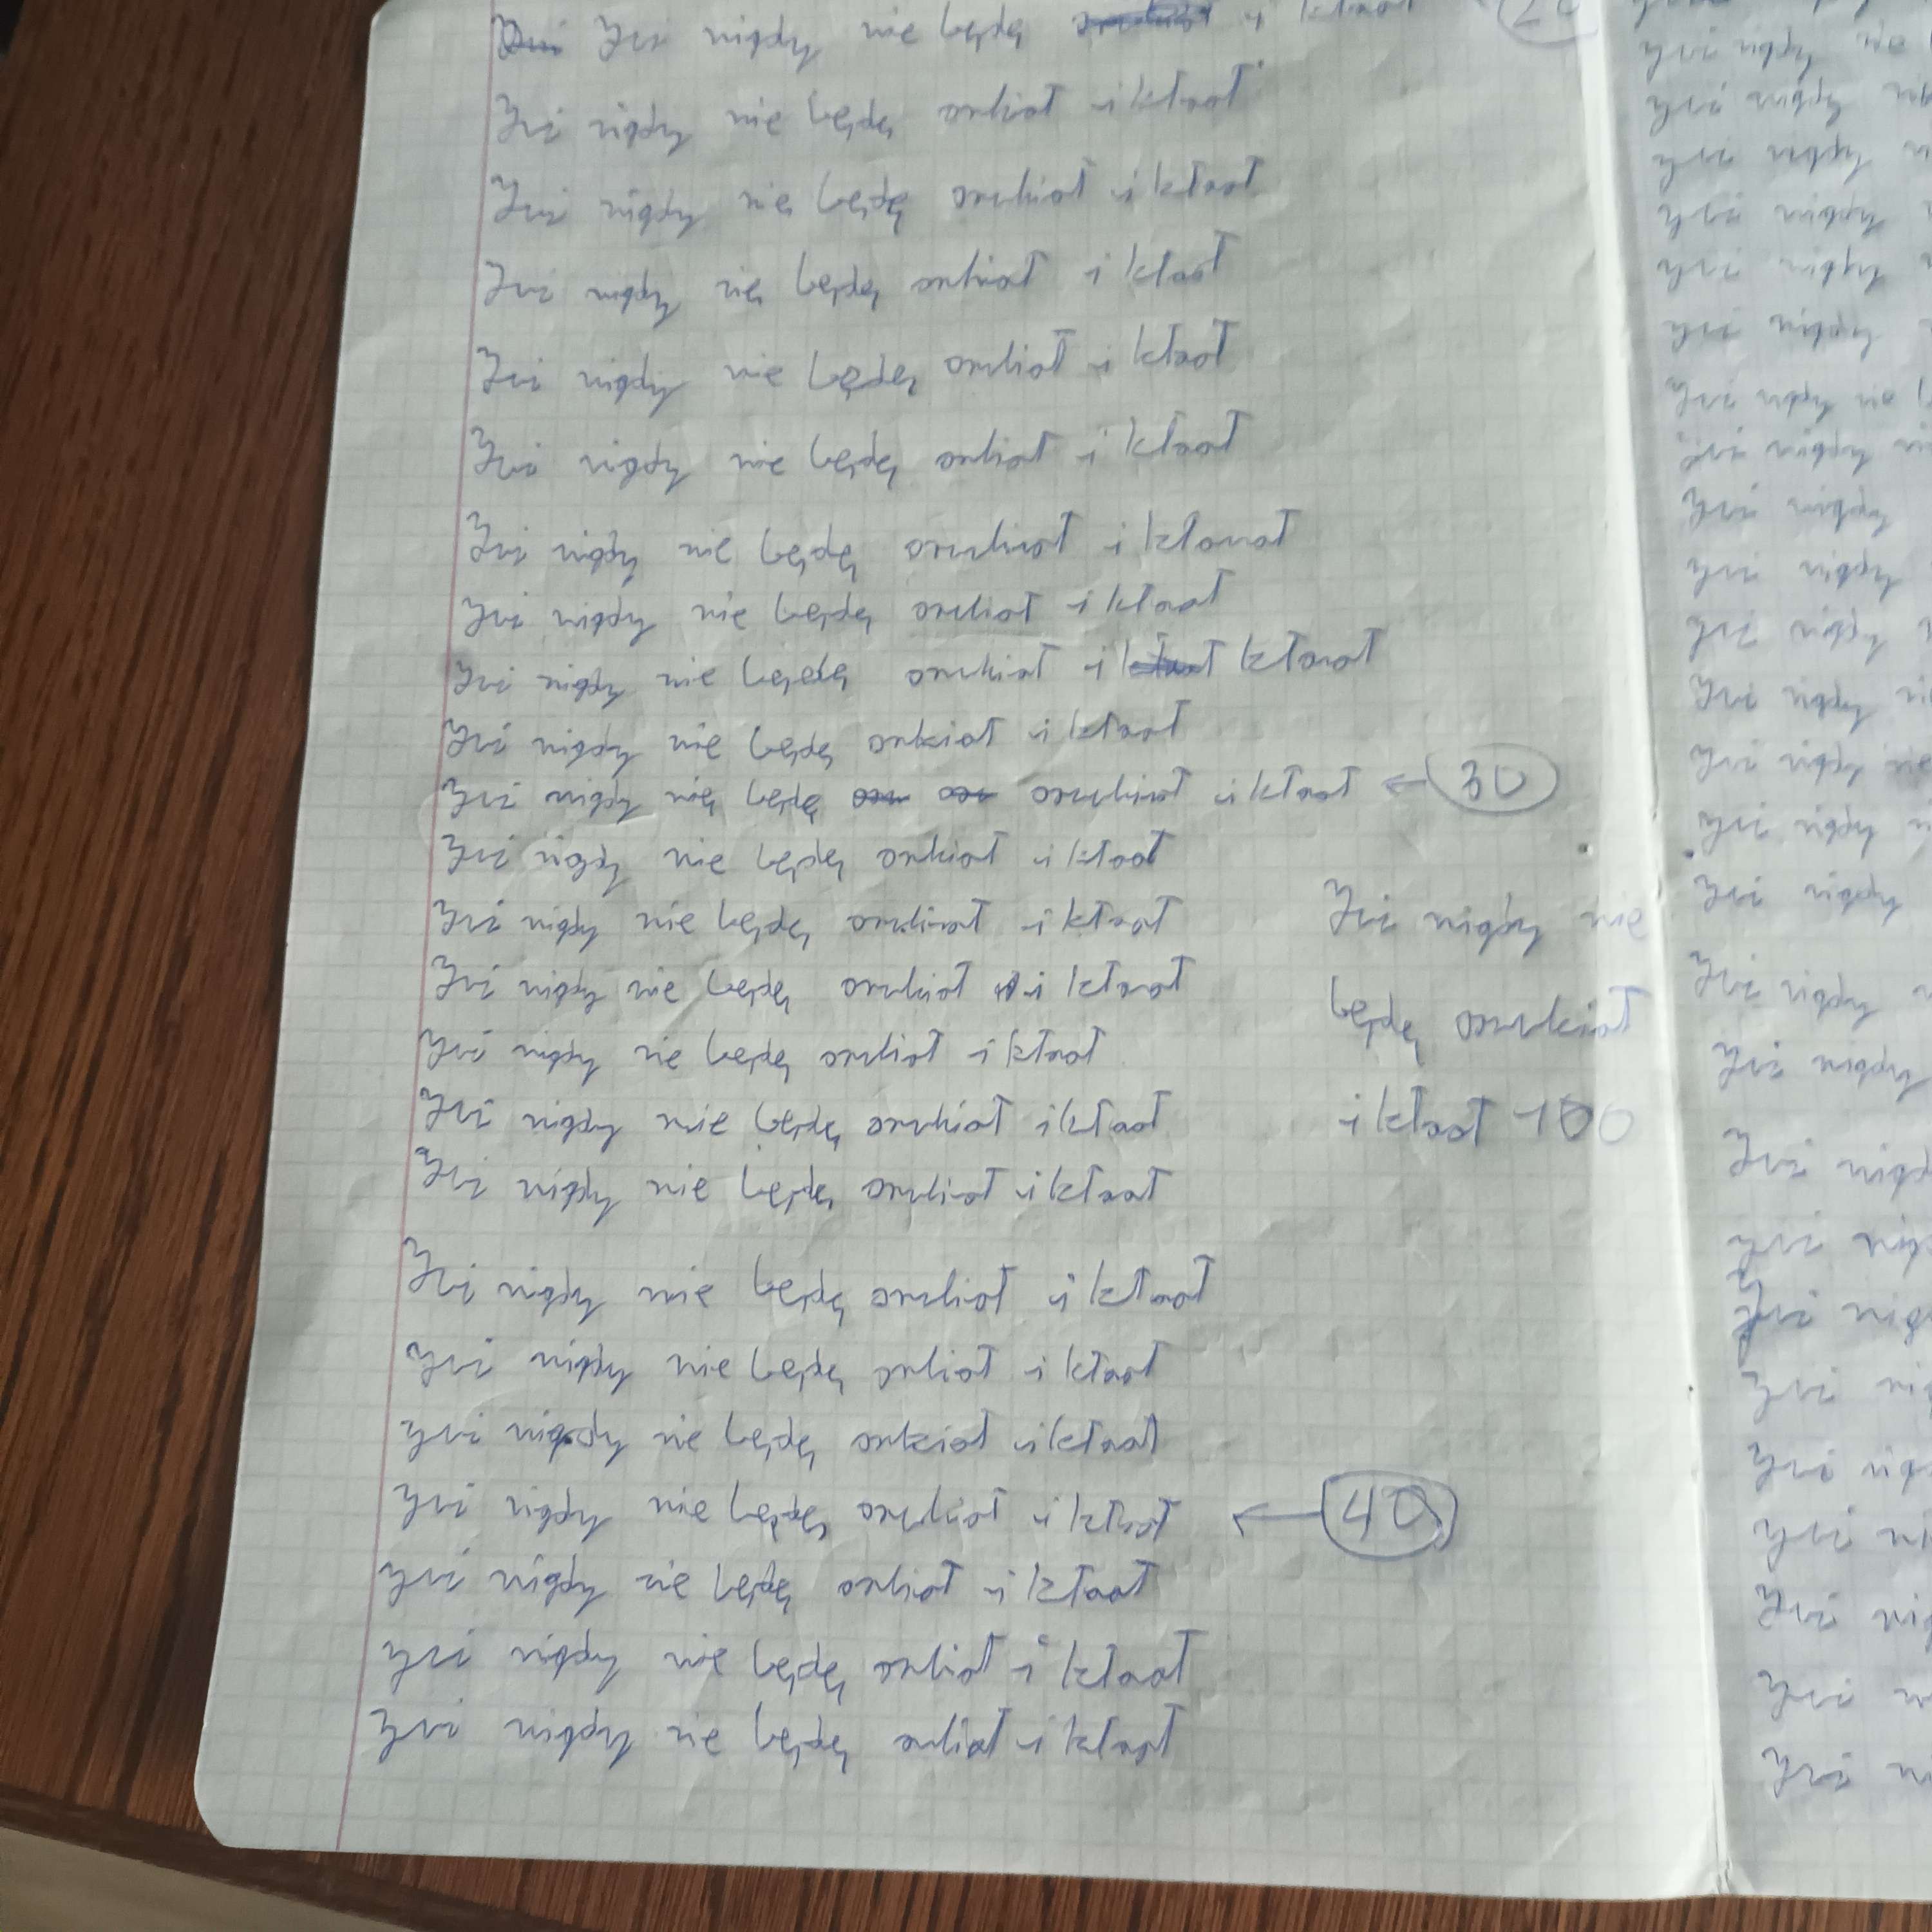 Już nigdy nie będę i kłamał 20
Już nigdy nie będę oszukiwał i kłamał
Już nigdy nie będę oszukiwał i kłamał
Już nigdy nie będę oszukiwał i kłamał
Już nigdy nie będę oszukiwał i kłamał
Już nigdy nie będę oszukiwał i kłamał
Już nigdy nie będę oszukiwał i kłamał
Już nigdy nie będę oszukiwał i kłamał
Już nigdy nie będę oszukiwał i kłamał
Już nigdy nie będę oszukiwał i kłamał
Już nigdy nie będę oszukiwał i kłamał ← 30
Już nigdy nie będę oszukiwał i kłamał
Już nigdy nie będę oszukiwał i kłamał
Już nigdy nie będę oszukiwał i kłamał
Już nigdy nie będę oszukiwał i kłamał
Już nigdy nie będę oszukiwał i kłamał
Już nigdy nie będę oszukiwał i kłamał
Już nigdy nie będę oszukiwał i kłamał
Już nigdy nie będę oszukiwał i kłamał
Już nigdy nie będę oszukiwał i kłamał
Już nigdy nie będę oszukiwał i kłamał ← 40
Już nigdy nie będę oszukiwał i kłamał
Już nigdy nie będę oszukiwał i kłamał
Już nigdy nie będę oszukiwał i kłamał
Już nigdy nie
będę oszukiwał
i kłamał 100
Już nigdy nie
Już nigdy
Już nigdy
Już nigdy
Już nigdy
Już nigdy
Już nigdy nie
Już nigdy
Już nigdy
Już nigdy
Już nigdy
Już nigdy
Już nigdy nie
Już nigdy
Już nigdy
Już nigdy
Już nigdy
Już
Już
Już
Już
Już
Już
Już
Już
Już